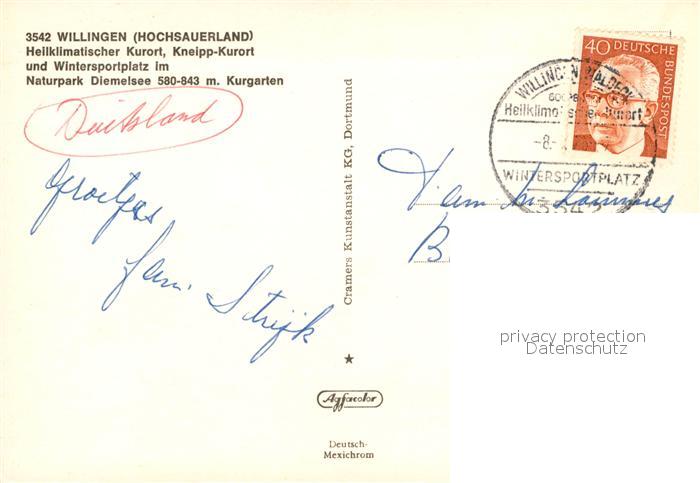 3542 WILLINGEN (HOCHSAUERLAND)
Heilklimatischer Kurort, Kneipp-Kurort
und Wintersportplatz im
Naturpark Diemelsee 580-843 m. Kurgarten
Duitsland
Groetjes
fam. Strijk
Cramers Kunstanstalt KG, Dortmund
Agfacolor
Deutsch-
Mexichrom
40 DEUTSCHE
BUNDESPOST
WILLINGEN WALDECK
Heilklimatischer Kurort
-8.
WINTERSPORTPLATZ
3542
Fam
B
privacy protection
Datenschutz